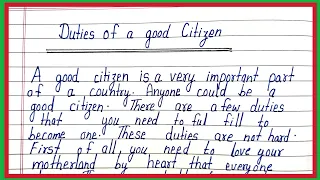 Duties of a good Citizen
A good citizen is a very important part
of a country. Anyone could be a
good citizen. There are a few duties
that you need to ful fill to
become one. These duties are not hard.
First of all, you need to love your
motherland by heart that everyone